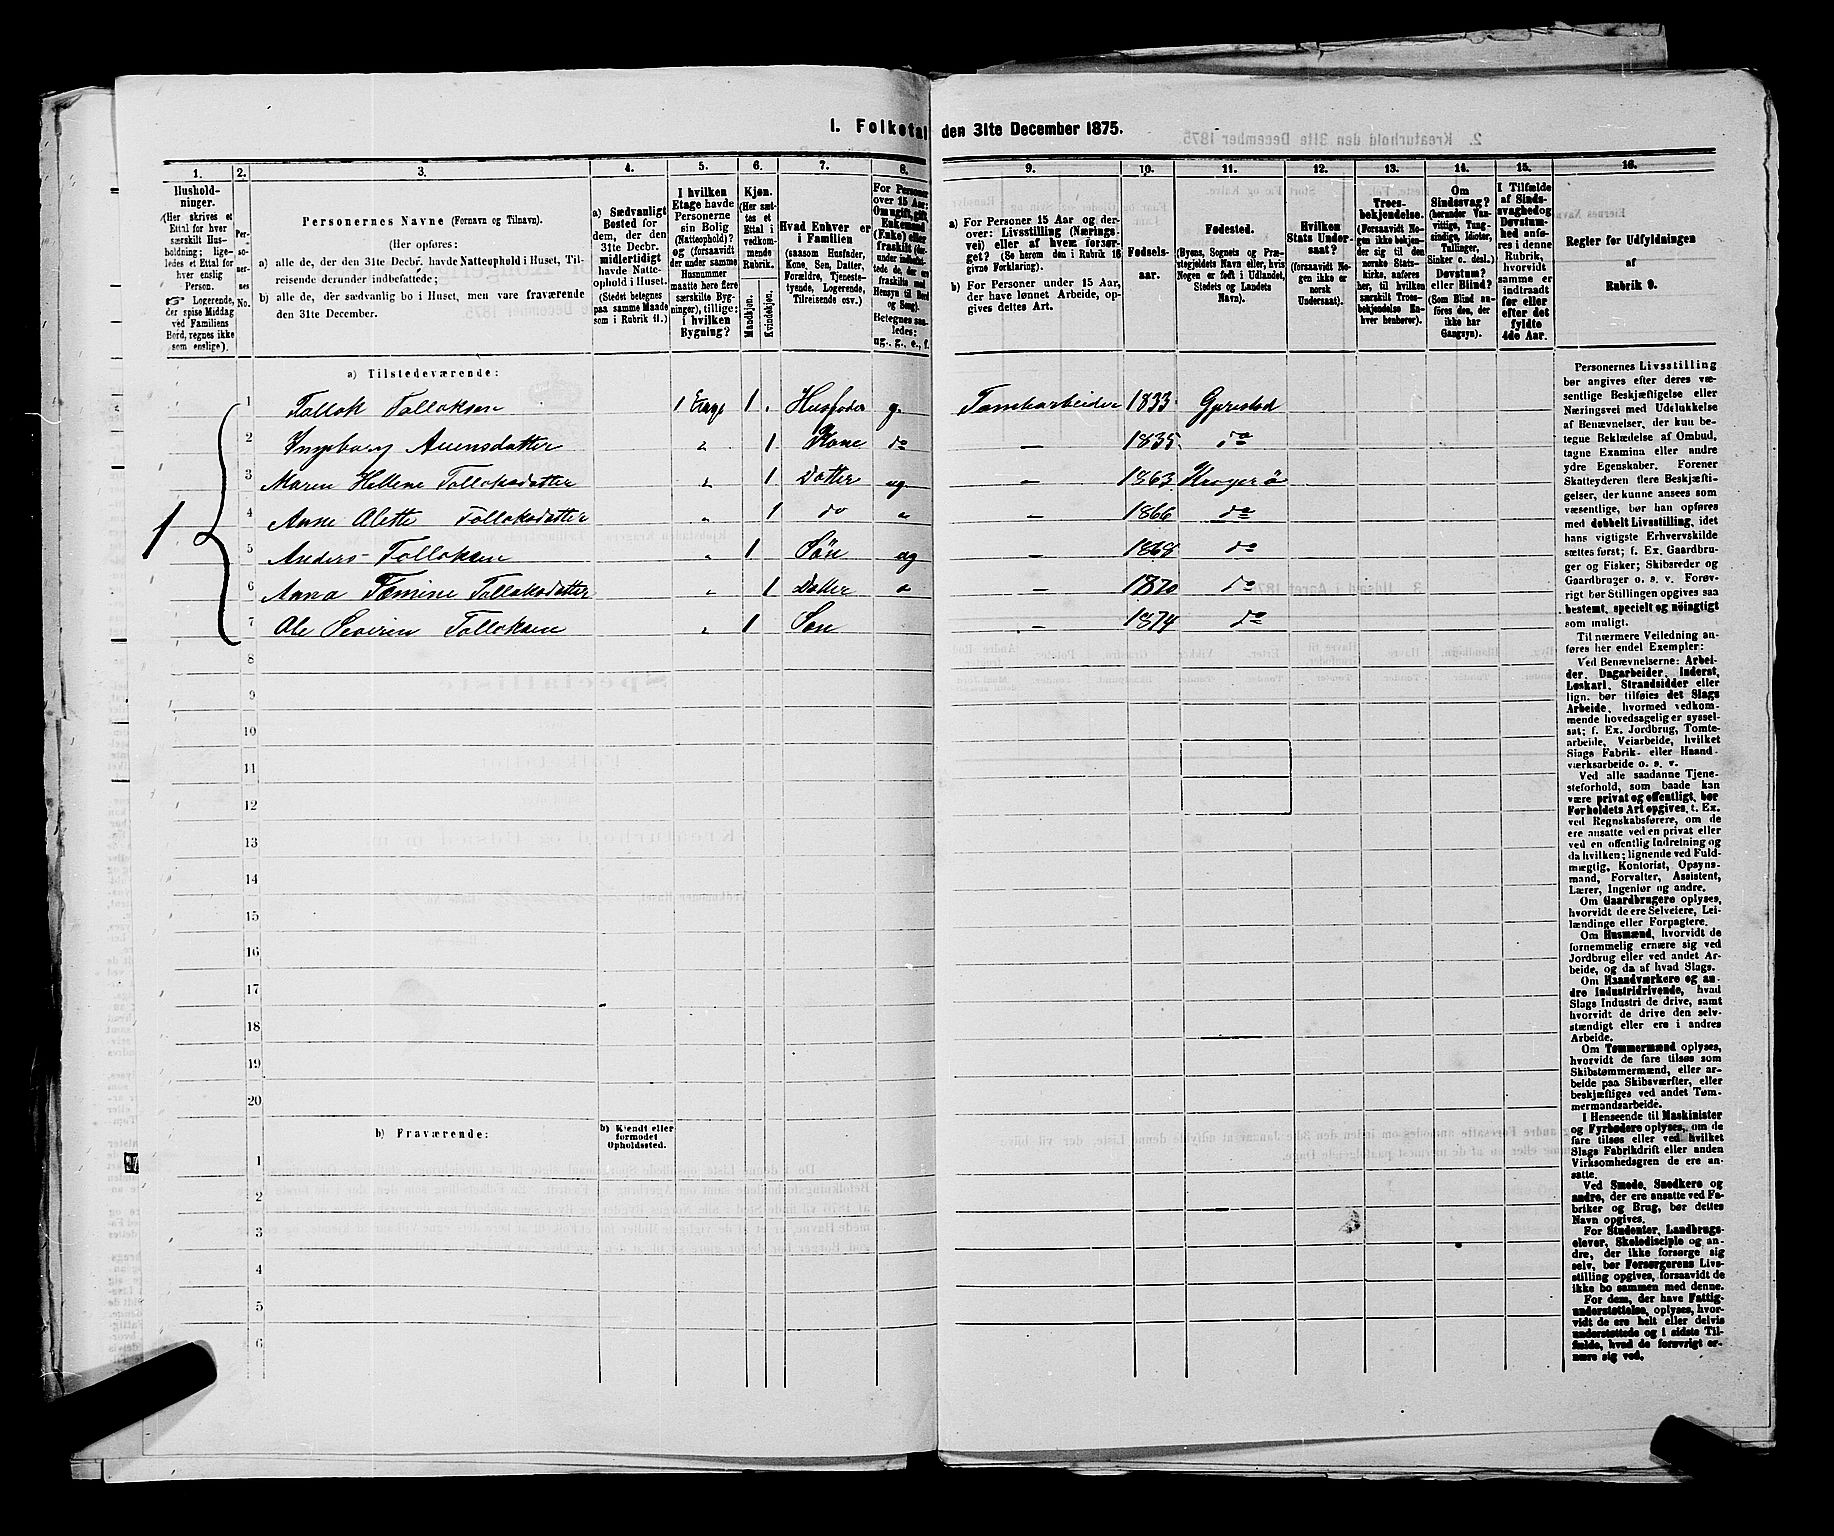 I. Folketal den 31te December 1875.
1. 2. 3. 4. 5. 6. 7. 8. 9. 10. 11. 12. 13. 14. 15. 16.
Hushold-
ninger.
(Her skrives et
Ettal for hver
særskilt Hus-
holdning; lige-
ledes et Ettal for
hver enslig
Person.
☞ Logerende,
der spise Middag
ved Familiens
Bord, regnes ikke
som enslige).
Per-
so-
ner-
nes
No.
Personernes Navne (Fornavn og Tilnavn).
(Her opføres:
a) alle de, der den 31te Decbr. havde Natteophold i Huset, Til-
reisende derunder indbefattede;
b) alle de, der sædvanlig bo i Huset, men vare fraværende
den 31te December.
a) Sædvanligt
Bosted for
dem, der den
31te Decbr.
midlertidigt
havde Natte-
ophold i Huset.
(Stedet betegnes
paa samme Maade
som i Rubrik 11.)
I hvilken
Etage havde
Personerne
sin Bolig
(Natteophold)?
og (forsaavidt
der under samme
Husnummer
maatte høre flere
særskilte Byg-
ninger), tillige:
i hvilken
Bygning?
Kjøn.
(Her sæt-
tes et
Ettal i
vedkom-
mende
Rubrik.
Mandkjøn.
Kvindekjøn.
Hvad Enhver er
i Familien
(saasom Husfader,
Kone, Søn, Datter,
Forældre, Tjeneste-
tyende, Logerende,
Tilreisende osv.)
For Personer
over 15 Aar:
Om ugift, gift,
Enkemand
(Enke) eller
fraskilt (de
Hensyn til Bord
og Seng).
Betegnes saa-
ledes:
ug., g., e., f.
a) For Personer 15 Aar og der-
over: Livsstilling (Nærings-
vei) eller af hvem forsør-
get? (Se herom den i Rubrik 16
givne Forklaring).
b) For Personer under 15 Aar,
der have lønnet Arbeide, op-
gives dettes Art.
Fødsels-
aar.
Fødested.
(Byens, Sognets og Præ-
stegjeldets Navn eller, hvis
Nogen er født i Udlandet,
Stedets og Landets
Navn).
Hvilken
Stats Under-
saat?
(forsaavidt No-
gen ikke er
norsk
Undersaat).
Troes-
bekjendelse.
(Forsaavidt No-
gen ikke bekjen-
der sig til den
norske Stats-
kirke, anføres
her, til hvilken
særskilt Troes-
bekjendelse En-
hver henhører).
Om
Sindssvag?
(herunder Van-
vittige, Tung-
sindige, Idioter,
Tullinger,
Sinker o. desl.)
Døvstum?
eller Blind?
(Som Blind an-
føres den, der
ikke har
Gangsyn).
I Tilfælde
af Sinds-
svaghed og
Døvstum-
hed anfø-
res i denne
Rubrik,
hvorvidt
samme er
indtraadt
før eller
efter det
fyldte
4de Aar.
Regler for Udfyldningen
af
Rubrik 9.
a) Tilstedeværende:
1 Tallok Talloksen 1 Etage 1 Husfader g. Tomtearbeider 1833 Gjerestad
2 Ingeborg Auensdatter " 1 Kone do — 1835 do
3 Maren Hellene Talloksdatter " 1 Datter ug — 1863 Kragerø
1
4 Anne Alette Talloksdatter " 1 do " — 1866 do
5 Anders Talloksen " 1 Søn ug — 1868 do
6 Anna Tomine Talloksdatter " 1 Datter " — 1870 do
7 Ole Severin Talloksen " 1 Søn — 1874 do
8
9
10
11
12
13
14
15
16
17
18
19
20
b) Fraværende:
b) Kjendt eller
formodet
Opholdssted.
1
2
3
4
5
6
Personernes Livsstilling
bør angives efter deres væ-
sentlige Beskjæftigelse eller
Næringsvei med Udelukkelse
af Benævnelser, der kun be-
tegne Beklædelse af Ombud,
tagne Examina eller andre
ydre Egenskaber. Forener
Skatteyderen flere Beskjæfti-
gelser, der kunne ansees som
væsentlige, bør han opføres
med dobbelt Livsstilling, idet
hans vigtigste Erhvervskilde
sættes først; f. Ex. Gaardbru-
ger og Fisker; Skibsreder og
Gaardbruger o. s. v. Forøv-
rigt bør Stillingen opgives saa
bestemt, specielt og nøiagtigt
som muligt.
Til nærmere Veiledning an-
føres her endel Exempler:
Ved Benævnelserne: Arbei-
der, Dagarbeider, Inderst,
Løskarl, Strandsidder eller
lign. bør tilføies det Slags
Arbeide, hvormed vedkom-
mende hovedsagelig er syssel-
sat; f. Ex. Jordbrug, Tomte-
arbeide, Veiarbeide, hvilket
Slags Fabrik- eller Haand-
værksarbeide o. s. v.
Ved alle saadanne Tjene-
steforhold, som baade kan
være privat og offentligt, bør
Forholdets Art opgives, t. Ex.
ved Regnskabsførere, om de
ere ansatte ved en privat eller
ved en offentlig Indretning og
da hvilken; lignende ved Fuld-
mægtig, Kontorist, Opsyns-
mand, Forvalter, Assistent,
Lærer, Ingeniør og andre.
Om Gaardbrugere oplyses,
hvorvidt de ere Selveiere, Lei-
lændinge eller Forpagtere.
Om Husmænd, hvorvidt de
fornemmelig ernære sig ved
Jordbrug eller ved andet Ar-
beide, og da af hvad Slags.
Om Haandværkere og an-
dre Industridrivende, hvad
Slags Industri de drive, samt
hvorvidt de drive den selv-
stændigt eller ere i andres
Arbeide.
Om Tømmermænd oplyses,
hvorvidt de fare tilsøs som
Skibstømmermænd, eller ar-
beide paa Skibsværfter, eller
beskjæftiges ved andet Tøm-
mermandsarbeide.
I Henseende til Maskinister
og Fyrbødere oplyses, om de
fare tilsøs eller ved hvilket
Slags Fabrikdrift eller anden
Virksomhedsgren de ere an-
satte.
Ved Smede, Snedkere og
andre, der ere ansatte ved Fa-
briker og Brug, bør dettes
Navn opgives.
For Studenter, Landbrugs-
elever, Skoledisciple og an-
dre, der ikke forsørge sig
selv, bør Forsørgerens Livs-
stilling opgives, forsaavidt de
ikke bo sammen med denne.
For dem, der have Fattig-
understøttelse, oplyses, hvor-
vidt de ere helt eller delvis
understøttede og i sidste Til-
fælde, hvad de forøvrigt er-
nære sig ved.